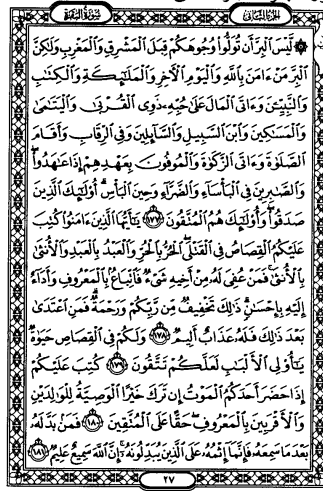 الجزء الثاني
سورة البقرة
۞ لَّيْسَ ٱلْبِرَّ أَن تُوَلُّوا۟ وُجُوهَكُمْ قِبَلَ ٱلْمَشْرِقِ وَٱلْمَغْرِبِ وَلَٰكِنَّ
ٱلْبِرَّ مَنْ ءَامَنَ بِٱللَّهِ وَٱلْيَوْمِ ٱلْءَاخِرِ وَٱلْمَلَٰٓئِكَةِ وَٱلْكِتَٰبِ
وَٱلنَّبِيِّۦنَ وَءَاتَى ٱلْمَالَ عَلَىٰ حُبِّهِۦ ذَوِى ٱلْقُرْبَىٰ وَٱلْيَتَٰمَىٰ
وَٱلْمَسَٰكِينَ وَٱبْنَ ٱلسَّبِيلِ وَٱلسَّآئِلِينَ وَفِى ٱلرِّقَابِ وَأَقَامَ
ٱلصَّلَوٰةَ وَءَاتَى ٱلزَّكَوٰةَ وَٱلْمُوفُونَ بِعَهْدِهِمْ إِذَا عَٰهَدُوا۟ ۖ
وَٱلصَّٰبِرِينَ فِى ٱلْبَأْسَآءِ وَٱلضَّرَّآءِ وَحِينَ ٱلْبَأْسِ ۗ أُو۟لَٰٓئِكَ ٱلَّذِينَ
صَدَقُوا۟ ۖ وَأُو۟لَٰٓئِكَ هُمُ ٱلْمُتَّقُونَ ١٧٧ يَٰٓأَيُّهَا ٱلَّذِينَ ءَامَنُوا۟ كُتِبَ
عَلَيْكُمُ ٱلْقِصَاصُ فِى ٱلْقَتْلَى ۖ ٱلْحُرُّ بِٱلْحُرِّ وَٱلْعَبْدُ بِٱلْعَبْدِ وَٱلْأُنثَىٰ
بِٱلْأُنثَىٰ ۚ فَمَنْ عُفِىَ لَهُۥ مِنْ أَخِيهِ شَىْءٌ فَٱتِّبَاعٌۢ بِٱلْمَعْرُوفِ وَأَدَآءٌ
إِلَيْهِ بِإِحْسَٰنٍ ۗ ذَٰلِكَ تَخْفِيفٌ مِّن رَّبِّكُمْ وَرَحْمَةٌ ۗ فَمَنِ ٱعْتَدَىٰ
بَعْدَ ذَٰلِكَ فَلَهُۥ عَذَابٌ أَلِيمٌ ١٧٨ وَلَكُمْ فِى ٱلْقِصَاصِ حَيَوٰةٌ
يَٰٓأُو۟لِى ٱلْأَلْبَٰبِ لَعَلَّكُمْ تَتَّقُونَ ١٧٩ كُتِبَ عَلَيْكُمْ
إِذَا حَضَرَ أَحَدَكُمُ ٱلْمَوْتُ إِن تَرَكَ خَيْرًا ٱلْوَصِيَّةُ لِلْوَٰلِدَيْنِ
وَٱلْأَقْرَبِينَ بِٱلْمَعْرُوفِ ۖ حَقًّا عَلَى ٱلْمُتَّقِينَ ١٨٠ فَمَنۢ بَدَّلَهُۥ
بَعْدَ مَا سَمِعَهُۥ فَإِنَّمَآ إِثْمُهُۥ عَلَى ٱلَّذِينَ يُبَدِّلُونَهُۥٓ ۚ إِنَّ ٱللَّهَ سَمِيعٌ عَلِيمٌ ١٨١
٢٧